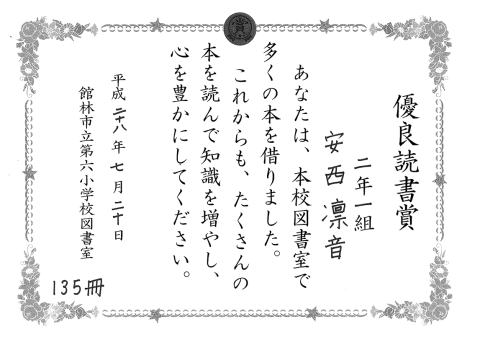 優良読書賞
二年一組
安西凛音
あなたは、本校図書室で
多くの本を借りました。
これからも、たくさんの
本を読んで知識を増やし、
心を豊かにしてください。
平成二十八年七月二十日
館林市立第六小学校図書室
135冊
賞